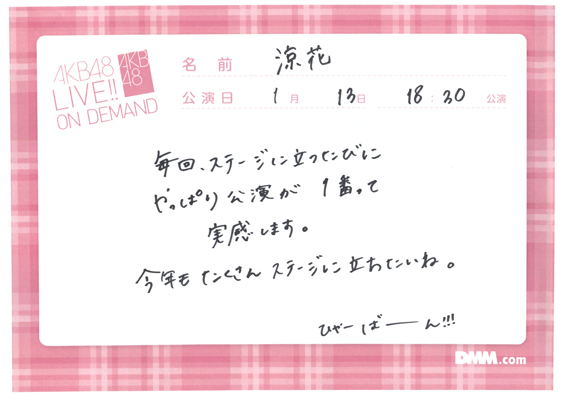 AKB48
LIVE!!
ON DEMAND
AKB
48
名前 涼花
公演日 1月 13日 18:30 公演
毎回、ステージに立つたびに
やっぱり公演が1番って
実感します。
今年もたくさんステージに立ちたいね。
ひゃーばーーん!!!
DMM.com